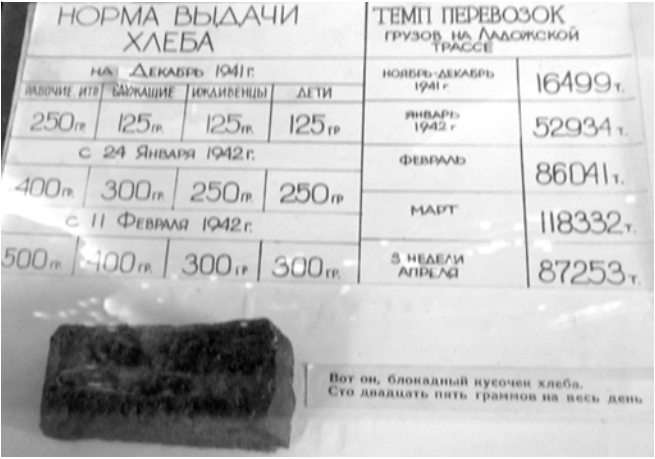 НОРМА ВЫДАЧИ
ХЛЕБА
НА ДЕКАБРЬ 1941 г.
РАБОЧИЕ ИТР СЛУЖАЩИЕ ИЖДИВЕНЦЫ ДЕТИ
250 гр. 125 гр. 125 гр. 125 гр
С 24 ЯНВАРЯ 1942 г.
400 гр. 300 гр. 250 гр. 250 гр
С 11 ФЕВРАЛЯ 1942 г.
500 гр. 400 гр. 300 гр 300 гр.
ТЕМП ПЕРЕВОЗОК
ГРУЗОВ НА ЛАДОЖСКОЙ
ТРАССЕ
НОЯБРЬ-ДЕКАБРЬ
1941 г
16499 т.
ЯНВАРЬ
1942 г
52934 т.
ФЕВРАЛЬ
86041 т.
МАРТ
118332 т.
3 НЕДЕЛИ
АПРЕЛЯ
87253 т.
Вот он, блокадный кусочек хлеба.
Сто двадцать пять граммов на весь день